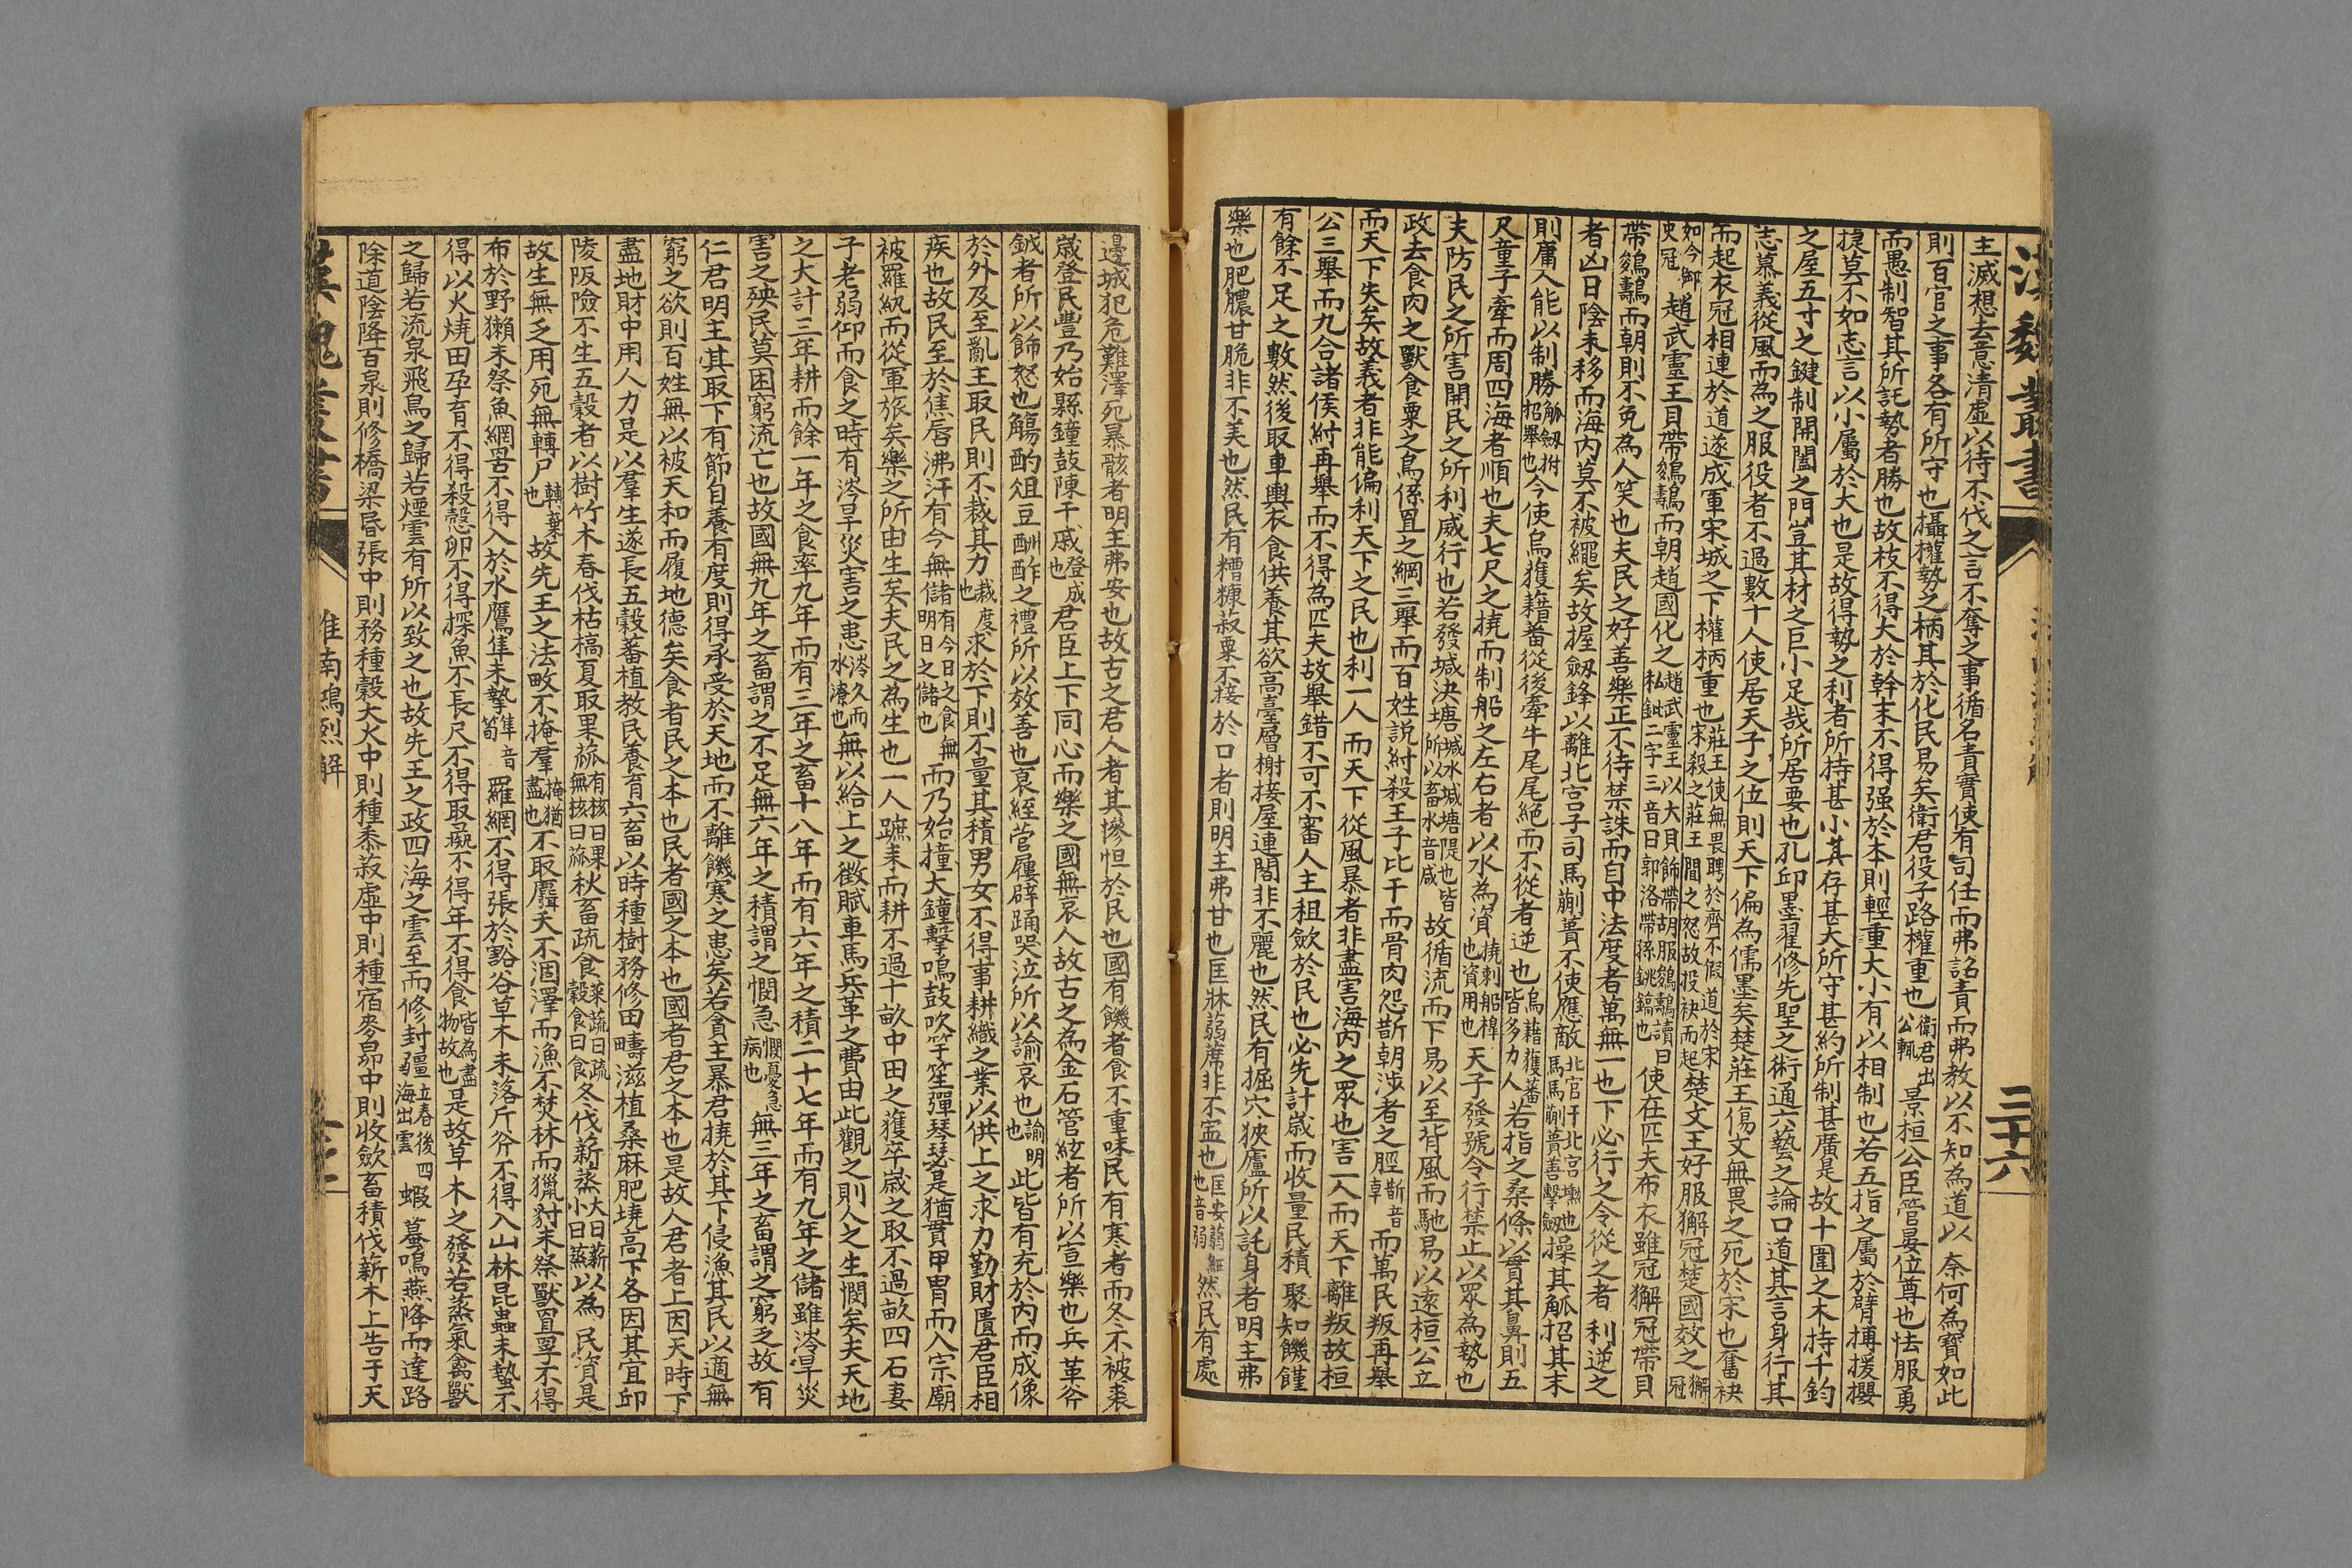 漢魏叢書
三十六
主滅想去意清虛以待不伐之言不奪之事循名責實使有司任而弗詔責而弗教以不知為道以奈何為寶如此
則百官之事各有所守也攝權勢之柄其於化民易矣衛君役子路權重也衛君出公輒景桓公臣管晏位尊也怯服勇
而愚制智其所託勢者勝也故枝不得大於幹末不得强於本則輕重大小有以相制也若五指之屬於臂搏援攫
捷莫不如志言以小屬於大也是故得勢之利者所持甚小其存甚大所守甚約所制甚廣是故十圍之木持千鈞
之屋五寸之鍵制開闔之門豈其材之巨小足哉所居要也孔邱墨翟修先聖之術通六藝之論口道其言身行其
志慕義從風而為之服役者不過數十人使居天子之位則天下徧為儒墨矣楚莊王傷文無畏之死於宋也奮袂
而起衣冠相連於道遂成軍宋城之下權柄重也莊王使無畏聘於齊不假道於宋宋殺之莊王聞之怒故投袂而起楚文王好服獬冠楚國效之獬冠
如今御史冠趙武靈王貝帶鵔鸃而朝趙國化之趙武靈王以大貝飾帶胡服鵔鸃讀曰私鈚二字三音曰郭洛帶孫銚鎬也使在匹夫布衣雖冠獬冠帶貝
帶鵔鸃而朝則不免為人笑也夫民之好善樂正不待禁誅而自中法度者萬無一也下必行之令從之者利逆之
者凶日陰未移而海內莫不被繩矣故握劒鋒以離北宮子司馬蒯蕢不使應敵操其觚招其末
則庸人能以制勝觚劒拊招舉也今使烏獲藉蕃從後牽牛尾尾絕而不從者逆也烏獲藉蕃皆多力人若指之桑條以貫其鼻則五
尺童子牽而周四海者順也夫七尺之橈而制船之左右者以水為資橈刺船槹也資用也天子發號令行禁止以眾為勢也
夫防民之所害開民之所利威行也若發堿決塘堿水堿塘隄也皆所以畜水音咸故循流而下易以至背風而馳易以遠桓公立
政去食肉之獸食粟之鳥係罝之網三舉而百姓說紂殺王子比干而骨肉怨斮朝涉者之脛斮音卓而萬民叛再舉
而天下失矣故義者非能徧利天下之民也利一人而天下從風暴者非盡害海內之眾也害一人而天下離叛故桓
公三舉而九合諸侯紂再舉而不得為匹夫故舉錯不可不審人主租歛於民也必先計歲而收量民積聚知饑饉
有餘不足之數然後取車輿衣食供養其欲高臺層榭接屋連閣非不麗也然民有掘穴狹廬所以託身者明主弗
樂也肥醲甘脆非不美也然民有糟糠菽粟不接於口者則明主弗甘也匡牀蒻席非不寍也匡安蒻細也音弱然民有處
邊城犯危難澤死暴骸者明主弗安也故古之君人者其慘怛於民也國有饑者食不重味民有寒者而冬不被裘
歲登民豐乃始縣鐘鼓陳干戚登成也君臣上下同心而樂之國無哀人故古之為金石管絃者所以宣樂也兵革斧
鉞者所以飾怒也觴酌俎豆酬酢之禮所以效善也衰絰菅屨辟踊哭泣所以諭哀也諭明也此皆有充於內而成像
於外及至亂主取民則不裁其力裁度也求於下則不量其積男女不得事耕織之業以供上之求力勤財匱君臣相
疾也故民至於焦唇沸汗有今無儲有今日之食無明日之儲也而乃始撞大鐘擊鳴鼓吹竽笙彈琴瑟是猶貫甲胄而入宗廟
被羅紈而從軍旅失樂之所由生矣夫民之為生也一人蹠耒而耕不過十畝中田之獲卒歲之取不過畝四石妻
子老弱仰而食之時有涔旱災害之患涔久而水潦也無以給上之徵賦車馬兵革之費由此觀之則人之生憫矣夫天地
之大計三年耕而餘一年之食率九年而有三年之畜十八年而有六年之積二十七年而有九年之儲雖涔旱災
害之殃民莫困窮流亡也故國無九年之畜謂之不足無六年之積謂之憫急憫憂急病也無三年之畜謂之窮乏故有
仁君明主其取下有節自養有度則得承受於天地而不離饑寒之患矣若貪主暴君撓於其下侵漁其民以適無
窮之欲則百姓無以被天和而履地德矣食者民之本也民者國之本也國者君之本也是故人君者上因天時下
盡地財中用人力是以羣生遂長五穀蕃植教民養育六畜以時種樹務修田疇滋植桑麻肥墝高下各因其宜邱
陵阪險不生五穀者以樹竹木春伐枯槁夏取果蓏有核曰果無核曰蓏秋畜疏食菜蔬曰疏穀食曰食冬伐薪蒸大曰薪小曰蒸以為民資是
故生無乏用死無轉尸轉棄也故先王之法畋不掩羣掩猶盡也不取麛夭不涸澤而漁不焚林而獵豺未祭獸罝罦不得
布於野獺未祭魚網罟不得入於水鷹隼未摯隼音笱羅網不得張於谿谷草木未落斤斧不得入山林昆蟲未蟄不
得以火燒田孕育不得殺鷇卵不得探魚不長尺不得取彘不得年不得食皆為盡物故也是故草木之發若蒸氣禽獸
之歸若流泉飛鳥之歸若煙雲有所以致之也故先王之政四海之雲至而修封疆立春後四海出雲蝦蟇鳴燕降而達路
除道陰降百泉則修橋梁昏張中則務種穀大火中則種黍菽虛中則種宿麥昴中則收歛畜積伐薪木上告于天
漢魏叢書
淮南鴻烈解